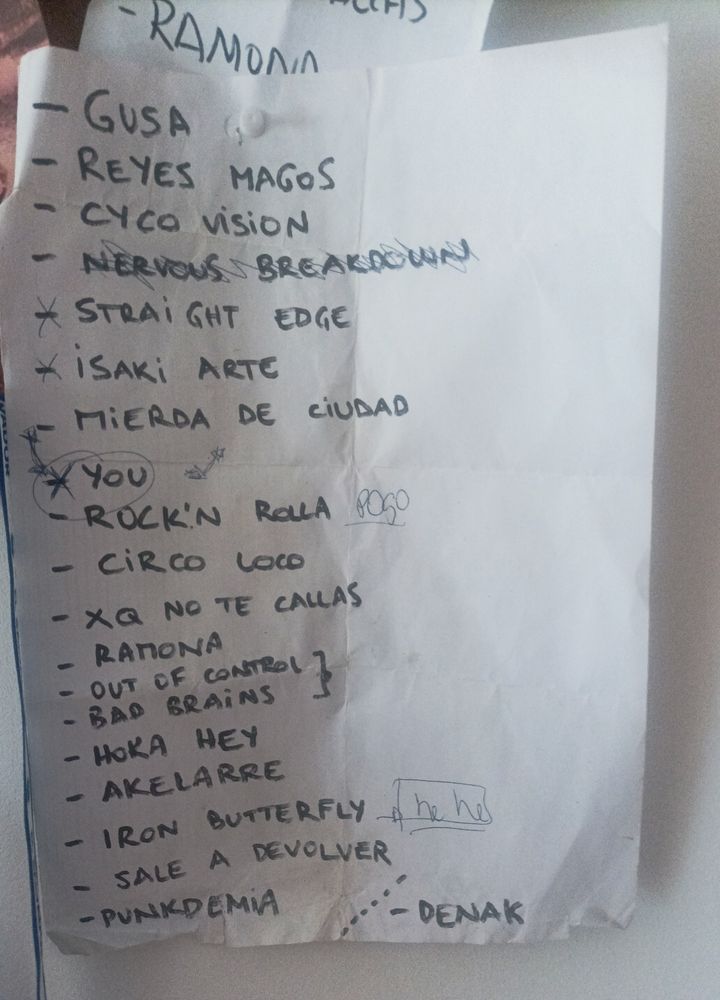 - RAMONA
- GUSA
- REYES MAGOS
- CYCO ViSiON
- NERVOUS BREAKDOWN
* STRAiGHT EDGE
* iSAKi ARTE
- MiERDA DE CiUDAD
* YOU
- ROCK'N ROLLA POGO
- CiRCO LOCO
- XQ NO TE CALLAS
- RAMONA
- OUT OF CONTROL }
- BAD BRAiNS
- HOKA HEY
- AKELARRE
- IRON BUTTERFLY he he
- SALE A DEVOLVER
- PUNKDEMiA - DENAK